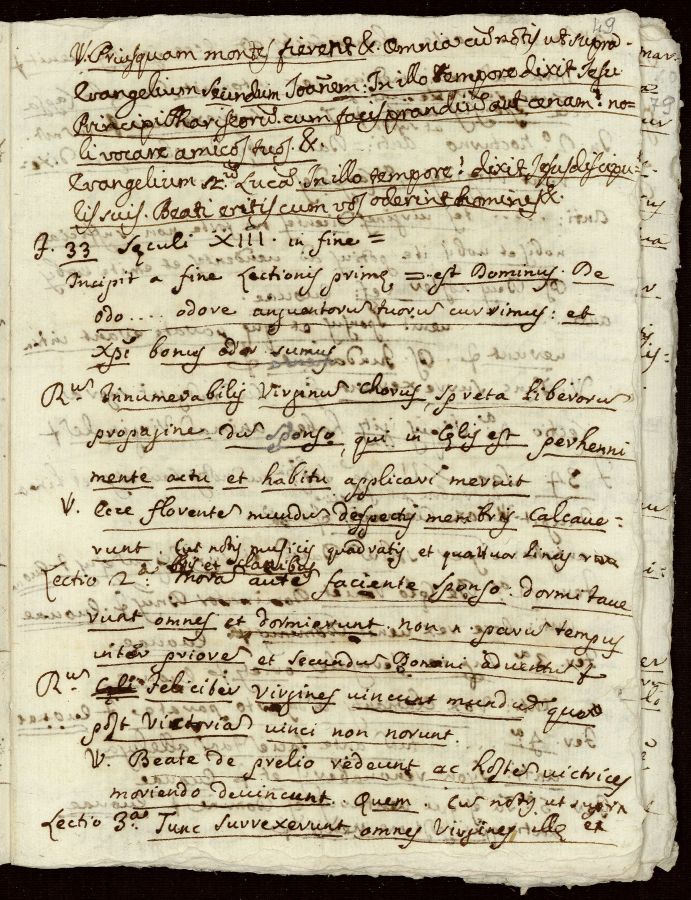 49
V. Priusquam montes fierent &. Omnia cū notis ut supra-
Evangelium secundum Joañem: In illo tempore dixit Jesu
Principi Phariseorū. cum facis prandiū aut cenam: no-
li vocare amicos tuos. &.
Evangelium sz. Lucā. In illo tempore: dixit Jesus discipu-
lis suis. Beati eritis cum vos oderint homines &.
f. 33 sęculi XIII. in fine =
Incipit a fine Lectionis primę = est Dominus. De
odo.... odore anguentorū tuorū currimus: et
Xpi bonus odor sumus
Rus Innumerabilis Virginū chorus, spreta liberorū
propagine dū sponso, qui in Cęlis est perhenni
mente actu et habitu applicari meruit
V. Ecce florente mundū despectis membris calcave-
runt. Cū notis musicis quadratis et quattuor lineis
Lectio 2a: Mora autē faciente sponso. dormitave
runt omnes et dormierunt. non n. parvū tempus
inter priorē et secundū Domini adventū
Rus Feliciter virgines vincunt mundū quę
post victoriā vinci non norunt.
V. Beate de prelio redeunt ac hostes victrices
moriendo devincunt. Quem. Cū notis ut supra
Lectio 3a. Tunc surrexerunt omnes virgines illę et